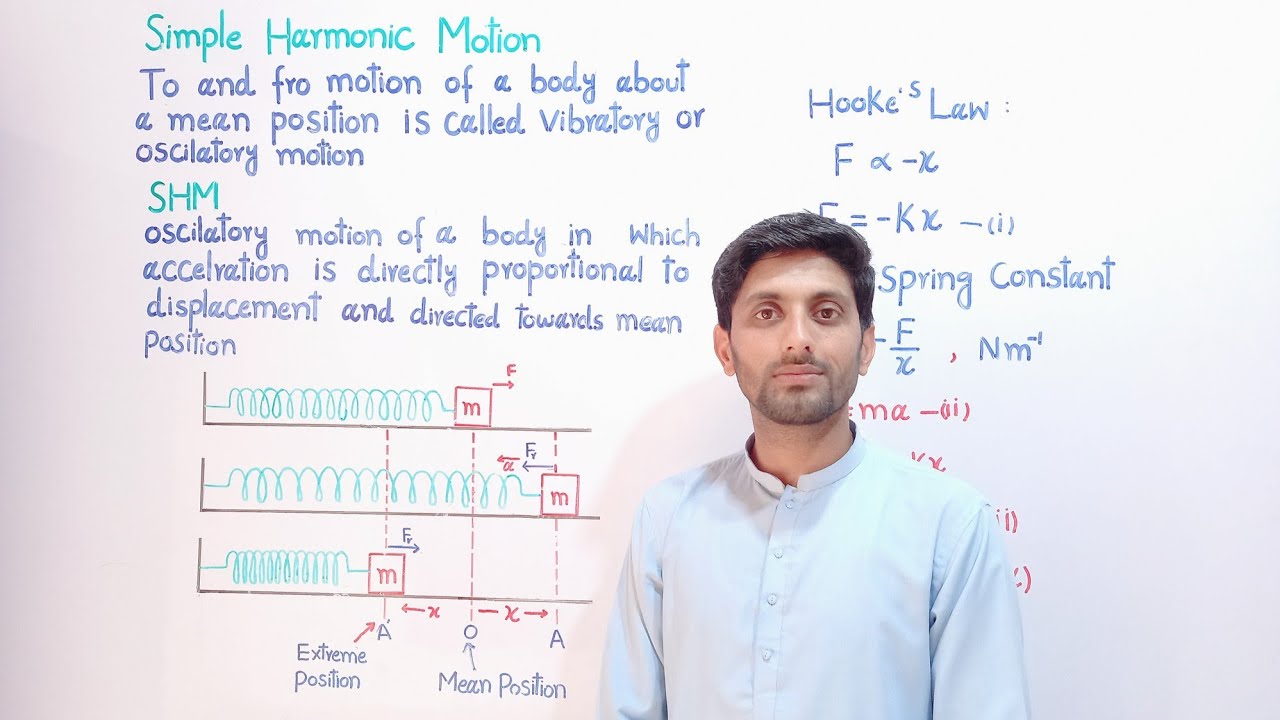 Simple Harmonic Motion
To and fro motion of a body about
a mean position is called vibratory or
oscilatory motion
SHM
oscilatory motion of a body in which
accelration is directly proportional to
displacement and directed towards mean
position
F
m
Fr
a
m
Fr
m
x
x
A'
O
A
Extreme
position
Mean Position
Hooke's Law :
F ∝ -x
F = -Kx —(i)
Spring Constant
-F/x , Nm⁻¹
=ma —(ii)